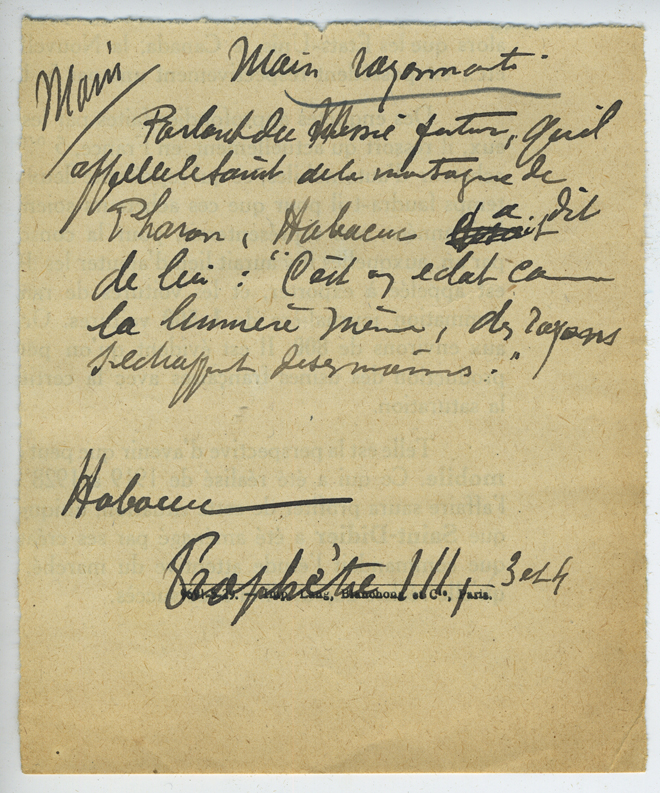 Main
Main rayonnante
Parlant du Messie futur, qu'il
appelle le saint de la montagne de
Pharan, Habacuc a dit
de lui : "C'est un eclat comme
la lumière même, des rayons
s'echappent de ses mains."
Habacuc
Prophétie III, 3 et 4
Imp. Lang, Blanchong et Cie, Paris.